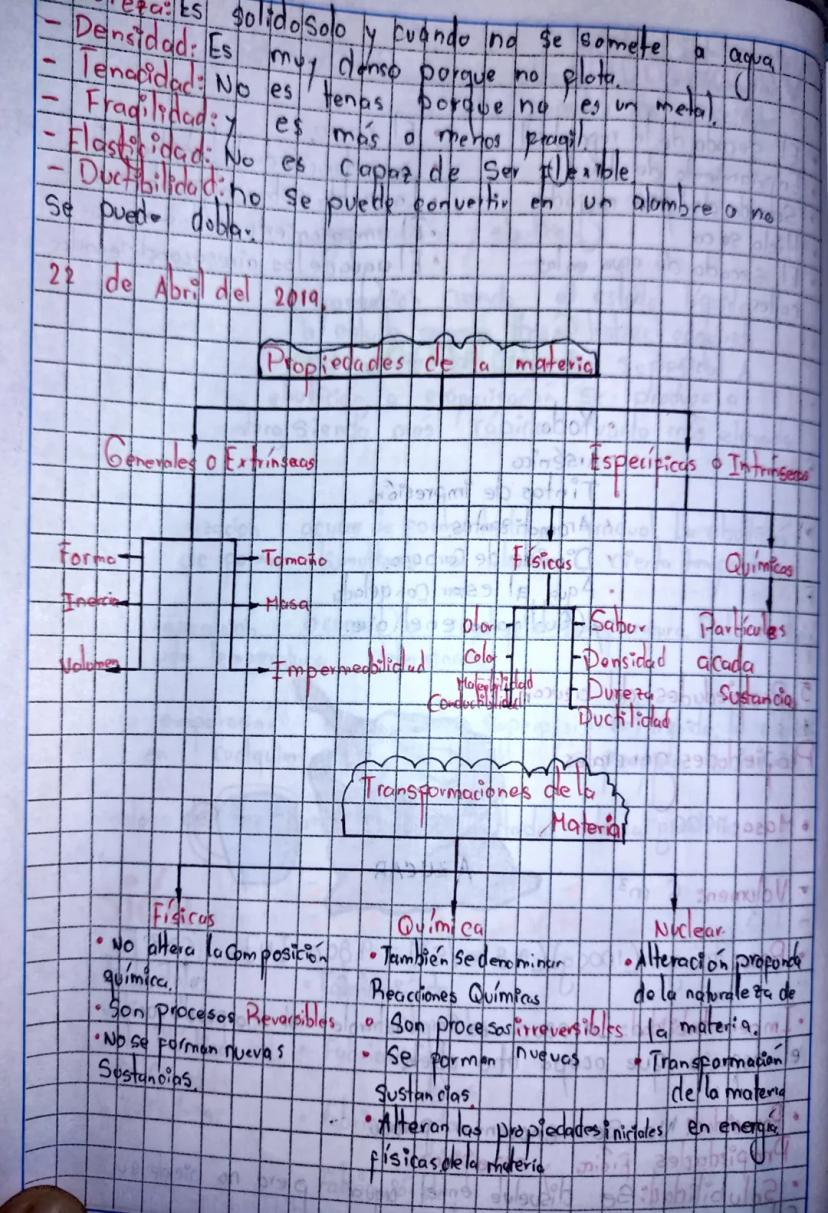 Es solido solo y cuándo no se somete a agua
- Densidad: Es muy denso porque no flota.
- Tenacidad: No es tenas porque no es un metal.
- Fragilidad: y es más o menos fragil.
- Elasticidad: No es capaz de ser flexible
- Ductibilidad: no se puede convertir en un alambre o no
se puede doblar.
22 de Abril del 2019.
Propiedades de la materia
Generales o Extrínsecas
Específicas o Intrínsecas
Físicas
Químicas
Forma
Tamaño
Inercia
Masa
Volumen
Impermeabilidad
Olor
Sabor
Color
Densidad
Maleabilidad
Dureza
Conductibilidad
Ductilidad
Partículas
acada
Sustancia
Transformaciones de la
Materia
Físicas
• No altera la composición
química.
• Son procesos Reversibles
• No se forman nuevas
Sustancias.
Química
• También se denominan
Reacciones Químicas
• Son procesos irreversibles
• Se forman nuevas
sustancias.
• Alteran las propiedades iniciales
físicas de la materia
Nuclear
• Alteración profonda
de la naturaleza de
la materia.
• Transformación
de la materia
en energía